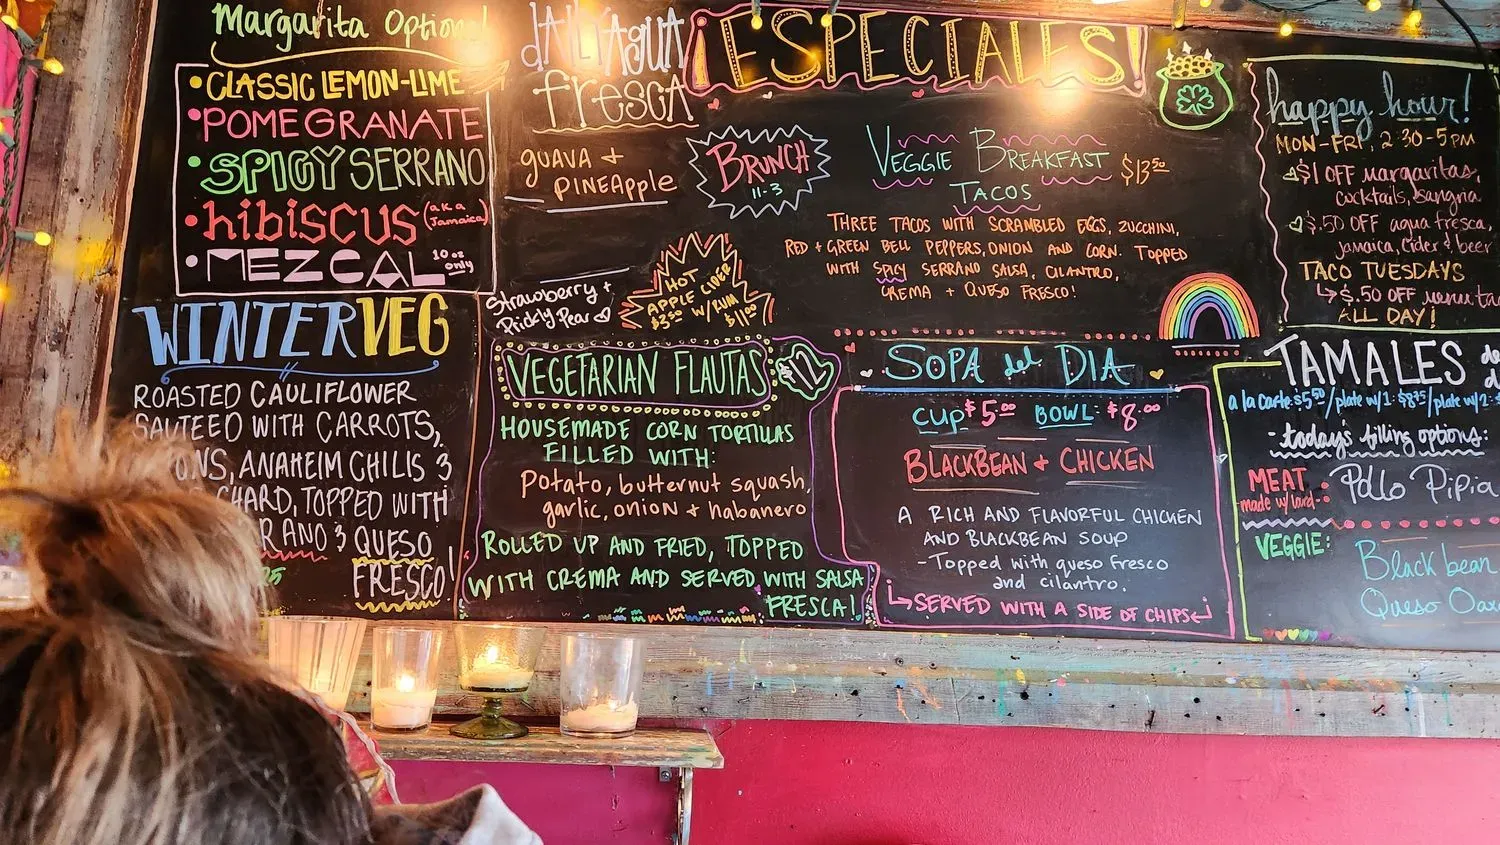 Margarita Options
• CLASSIC LEMON-LIME
• POMEGRANATE
• SPICY SERRANO
• hibiscus (a.k.a Jamaica)
• MEZCAL 10 oz only
WINTER VEG
ROASTED CAULIFLOWER
SAUTEED WITH CARROTS,
ONS, ANAHEIM CHILIS &
CHARD, TOPPED WITH
RANO & QUESO
FRESCO!
dAILY AGUA
fresca
guava +
PINEApple
Strawberry +
Prickly Pear
¡ESPECIALES!
BRUNCH
11-3
HOT
APPLE CIDER
$3.50 W/RUM
$11.00
VEGGIE BREAKFAST
TACOS $13.50
THREE TACOS WITH SCRAMBLED EGGS, ZUCCHINI,
RED + GREEN BELL PEPPERS, ONION AND CORN. TOPPED
WITH SPICY SERRANO SALSA, CILANTRO,
CREMA + QUESO FRESCO!
VEGETARIAN FLAUTAS 12
HOUSEMADE CORN TORTILLAS
FILLED WITH:
Potato, butternut squash,
garlic, onion + habanero
ROLLED UP AND FRIED, TOPPED
WITH CREMA AND SERVED WITH SALSA
FRESCA!
SOPA del DIA
CUP $5.00 BOWL: $8.00
BLACKBEAN + CHICKEN
A RICH AND FLAVORFUL CHICKEN
AND BLACKBEAN SOUP
- Topped with queso fresco
and cilantro.
SERVED WITH A SIDE OF CHIPS
happy hour!
MON-FRI, 2:30-5PM
$1 OFF margaritas,
cocktails, sangria
$.50 OFF agua fresca,
jamaica, cider & beer
TACO TUESDAYS
$.50 OFF menu ta
ALL DAY!
TAMALES de
a la carte: $5.50/plate w/1: $8.95/plate w/2: $
- today's filling options:
MEAT
made w/ lard: Pollo Pipia
VEGGIE: Black bean
Queso Oax